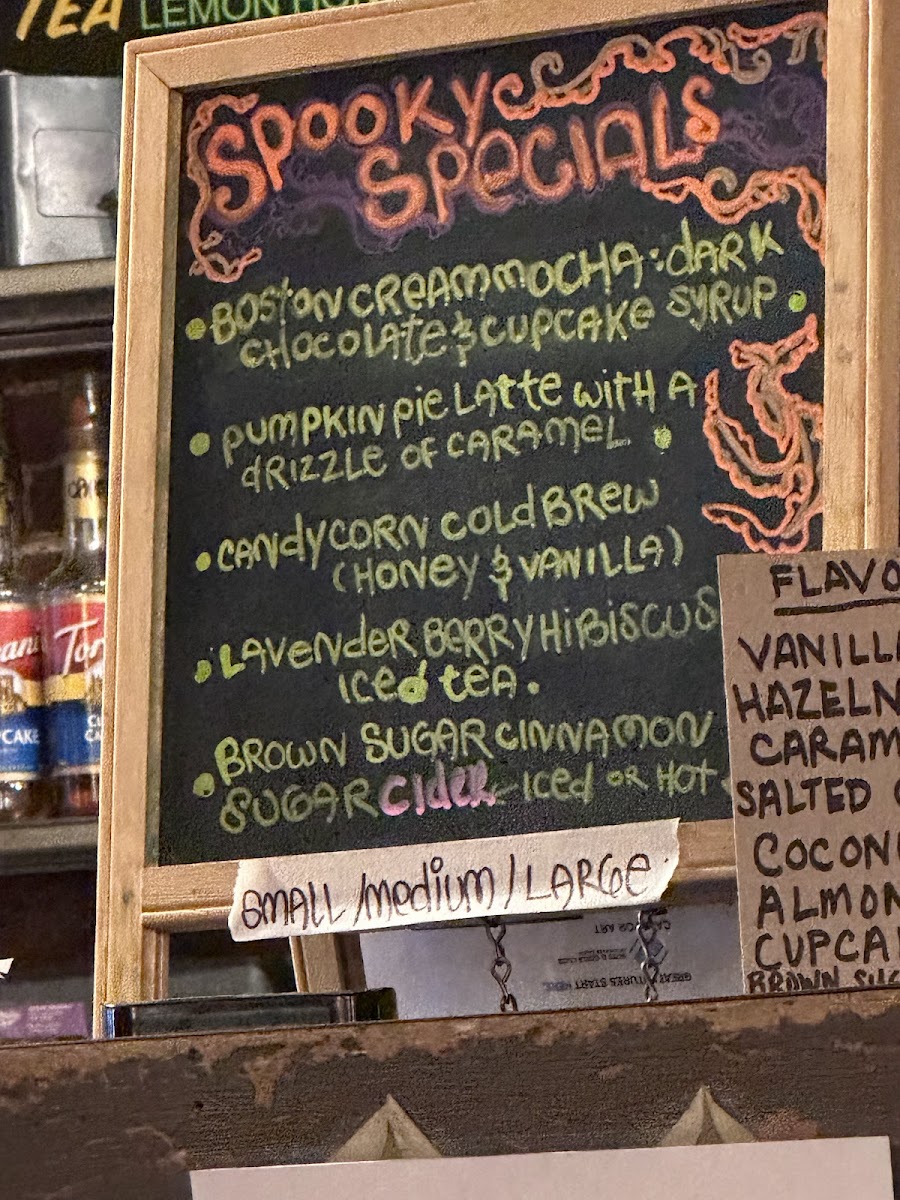 TEA
LEMON
SPOOKY
SPECIALS
BOSTON CREAM MOCHA · DARK
CHOCOLATE & CUPCAKE SYRUP
PUMPKIN PIE LATTE WITH A
DRIZZLE OF CARAMEL
CANDY CORN COLD BREW
(HONEY & VANILLA)
LAVENDER BERRY HIBISCUS
ICED TEA.
BROWN SUGAR CINNAMON
SUGAR CIDER - ICED OR HOT
SMALL / MEDIUM / LARGE
FLAVO
VANILLA
HAZELN
CARAM
SALTED C
COCON
ALMON
CUPCA
BROWN SUG
Tor
PCAKE